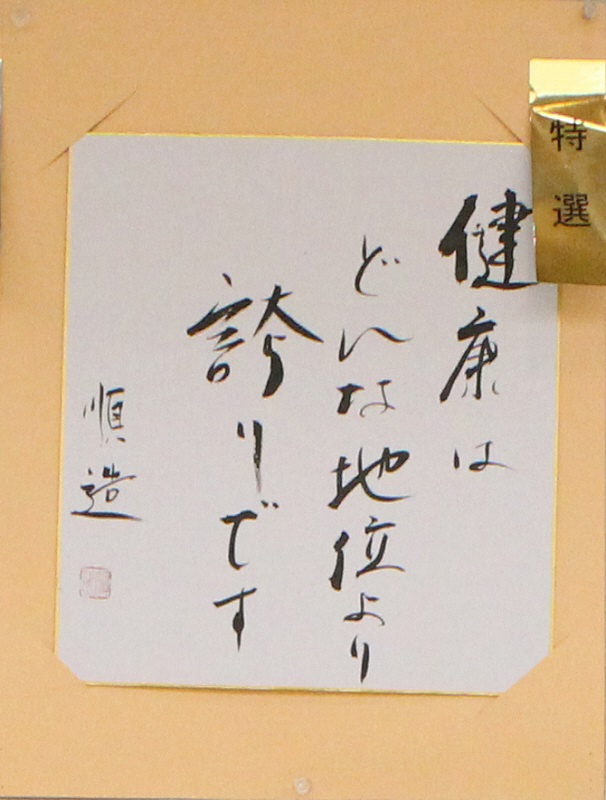 特選
健康は
どんな地位より
誇りです
順造